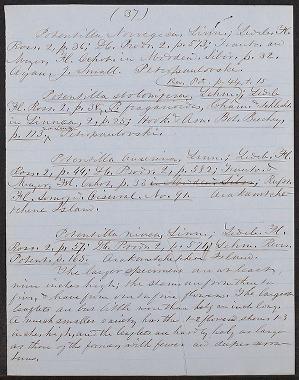 (37)
Potentilla Norvegica, Linn.; Ledeb. Fl.
Ross. 2, p. 36; Fl. Prodr. 2, p. 573; Trautv. and
Meyer, Fl. Ochot. in Midden. Sibir. p. 32.
Ayan, J. Small. Petropaulovski.
Potentilla stolonifera, Lehm.; Ledeb.
Fl. Ross. 2, p. 38. P. fragarioides, Cham. & Schlecht.
in Linnaea, 2, p. ; Hook. & Arn. Bot. Beechey,
p. 113. Petropaulovski.
Potentilla anserina, Linn.; Ledeb. Fl.
Ross. 2, p. 44; Prodr. 2, p. 582; Trautv. &
Meyer, Fl. Ochot. p. 33
Arakamtche-
tchene Island.
Potentilla nivea, Linn.; Ledeb. Fl.
Ross. 2, p. 57; Prodr. 2, p. 571; Lehm. Rev.
Potent. p. 165. Arakamtchetchene Island.
The larger specimens are at least
nine inches high; the stems are from three to
five, & have from one to five flowers. The largest
leaflets are but little more than half an inch long.
A much smaller variety has the 1-2 flowered stems 2-3
inches high, and the leaflets are hardly half as large
as those of the former, with fewer and deeper serra-
tures.